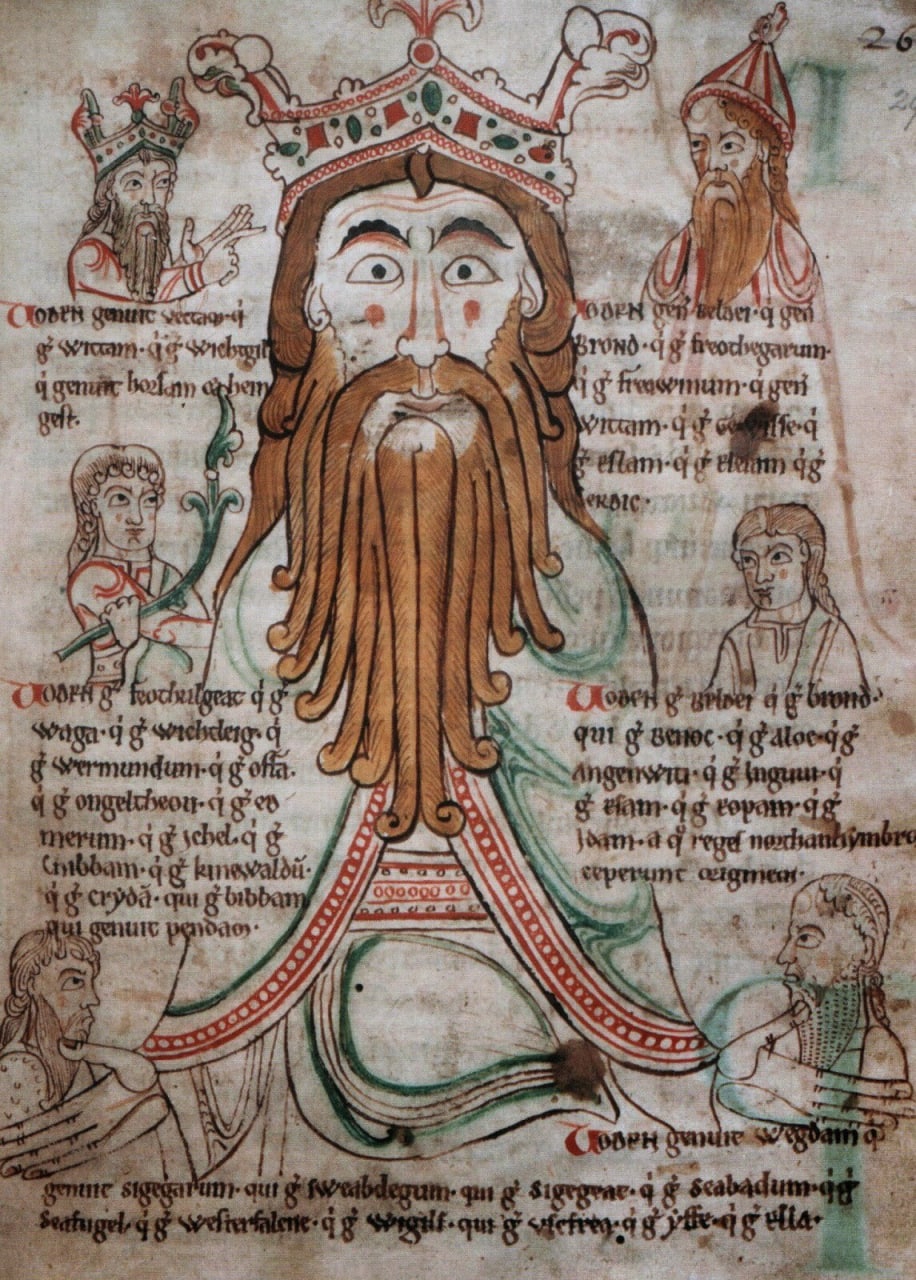 26
Woden genuit vectam · q̇
g̃ wittam · q̇ g̃ wichtgil
q̇ genuit horsam & hen
gest ·
Woden geñ beldei · q̇ geñ
brond · q̇ g̃ freothegarum ·
q̇ g̃ freawinum · q̇ geñ
wittam · q̇ g̃ · q̇
g̃ eslam · q̇ g̃ elesam q̇ g̃
cerdic ·
Woden g̃ feothulgeat q̇ g̃
waga · q̇ g̃ wichtleig · q̇
g̃ wermundum · q̇ g̃ offa ·
q̇ g̃ ongeltheou · q̇ g̃ eo
merum · q̇ g̃ Ichel · q̇ g̃
Cnibbam · q̇ g̃ kinewaldū ·
q̇ g̃ crydā · qui g̃ bibbam
qui genuit pendam ·
Woden g̃ beldei q̇ g̃ brond ·
qui g̃ benoc · q̇ g̃ aloc · q̇ g̃
Angenwiti · q̇ g̃ Inguui · q̇
g̃ esam · q̇ g̃ eopam · q̇ g̃
Idam · a q̊ reges northanhymbro
ceperunt originem ·
Woden genuit wegdam q̇
genuit sigegarum · qui g̃ sweabdegum · qui g̃ sigegeat · q̇ g̃ seabadum · q̇ g̃
seafugel · q̇ g̃ westerfalcne · q̇ g̃ wigilf · qui g̃ vscfrea · q̇ g̃ yffe · q̇ g̃ ella ·